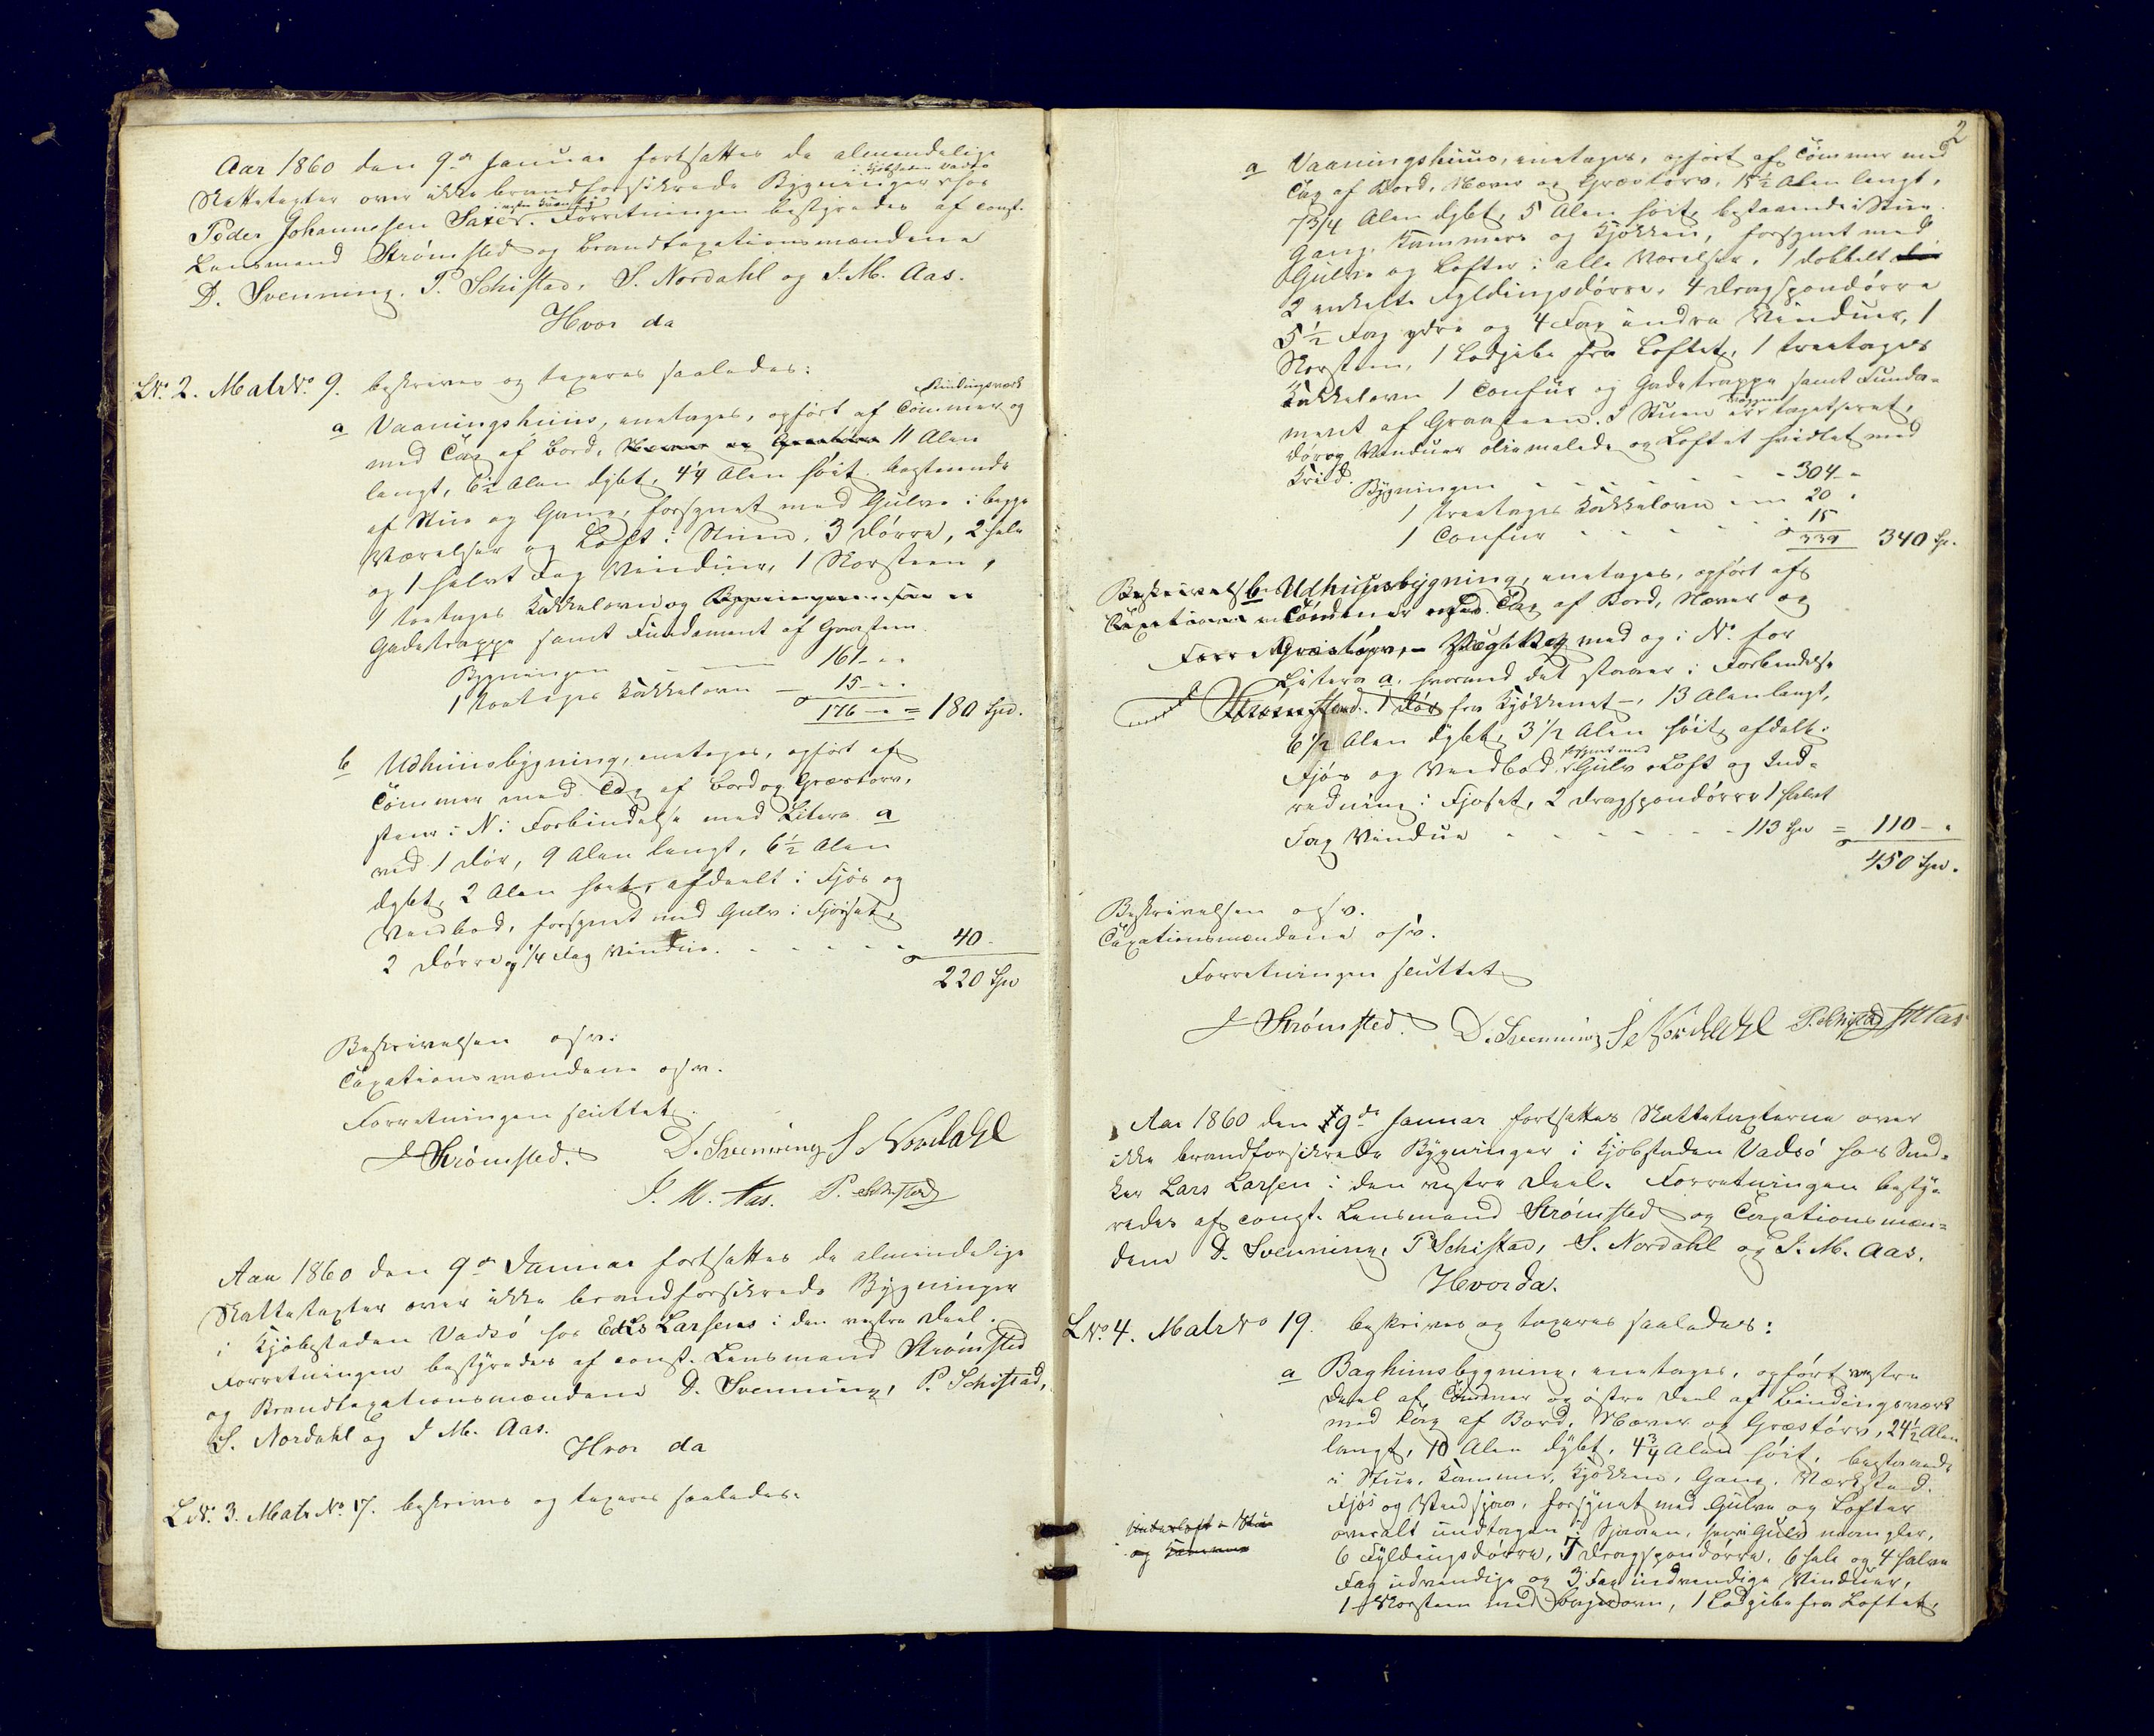 Aar 1860 den 9de Januar fortsattes de almindelige
i Kjøbstaden Vadsø
Skattetaxter over ikke brandforsikrede Bygninger hos
Peder Johannesen Saxe. Forretningen bestyredes af const.
Lensmand Strømsted og Brandtaxationsmændene
D. Svenning, P. Schistad, S. Nordahl og I. M. Aas.
Hvor da
LN: 2. Matr No. 9. beskrives og taxeres saaledes:
Bindingsværk
a Vaaningshuus, enetages, opført af Tømmer og
med Tag af Bord, 11 Alen
langt, 6½ Alen dybt, 4¼ Alen høit bestaaende
af Stue og Gang, forsynet med Gulve i begge
Værelser og Loft i Stuen, 3 Dørre, 2 hele
og 1 halvt Fag Vinduer, 1 Skorsteen,
1 toetages Kakkelovn og
Gadetrappe samt Fundament af Graasteen.
Bygningen 161
1 toetages Kakkelovn 15
176 = 180 Spd.
b Udhuusbygning, enetages, opført af
Tømmer med Tag af Bord og Græstorv,
staar i N. i Forbindelse med Litera a
ved 1 Dør, 9 Alen langt, 6½ Alen
dybt, 2 Alen høit, afdeelt i Fjøs og
Vedbod, forsynet med Gulv i Fjøset,
2 Dørre og ¼ Fag Vindue. 40
220 Spd
Beskrivelsen osv.
Taxationsmændene osv.
Forretningen sluttet.
Strømsted. D. Svenning S. Nordahl
I. M. Aas. P. Schistad
Aar 1860 den 9de Januar fortsattes de almindelige
Skattetaxter over ikke brandforsikrede Bygninger
i Kjøbstaden Vadsø hos Larsens i den vestre Deel.
Forretningen bestyredes af const. Lensmand Strømsted
og Brandtaxationsmændene D. Svenning, P. Schistad,
S. Nordahl og I. M. Aas.
Hvor da
LN: 3. Matr No. 17. beskrives og taxeres saaledes:
2
a Vaaningshuus, enetages, opført af Tømmer med
Tag af Bord, Næver og Græstorv, 15½ Alen langt,
7 3/4 Alen dybt, 5 Alen høit, bestaaende i Stue,
Gang, Kammers og Kjøkken, forsynet med
Gulve og Lofter i alle Værelser, 1 dobbelt
2 enkelte Fyldingsdørre, 4 Dragspondørre
5½ Fag ydre og 4 Fag indre Vinduer, 1
Skorsteen, 1 Lodpibe fra Loftet, 1 treetages
Kakkelovn 1 Confur og Gadetrappe samt Funda-
ment af Graasteen. I Stuen er tapetseret,
Dør og Vinduer oliemalede og Loftet hvidtet med
Krid.
Bygningen 304
1 treetages Kakkelovn 20
1 Confur 15
339 340 Sp.
b. Udhuusbygning, enetages, opført af
Tømmer med Tag af Bord, Næver og
Græstorv, med og i N. for
Litera a, hvormed det staaer i Forbindelse
1 Dør fra Kjøkkenet, 13 Alen langt,
6½ Alen dybt, 3½ Alen høit, afdelt i
forsynet med
Fjøs og Vedbod, Gulv, Loft og Ind-
redning i Fjøset, 2 Dragspondørre 1 halvt
Fag Vindue 113 Spd = 110
450 Spd.
Beskrivelsen osv.
Taxationsmændene osv.
Forretningen sluttet
Strømsted. D. Svenning S. Nordahl P. Schistad I M Aas
Aar 1860 den 9de Januar fortsattes Skattetaxterne over
ikke brandforsikrede Bygninger i Kjøbstaden Vadsø hos Sned-
ker Lars Larsen i den vestre Deel. Forretningen besty-
redes af const. Lensmand Strømsted og Taxationsmæn-
dene D. Svenning, P Schistad, S. Nordahl og I. M. Aas.
Hvor da.
LNo. 4. Matr No 19. beskrives og taxeres saaledes:
a Baghuusbygning, enetages, opført vestre
Deel af Tømmer og østre Deel af Bindingsværk
med Tag af Bord, Næver og Græstørv, 24½ Alen
langt, 10 Alen dybt, 4¾ Alen høit, bestaaende
i Stue, Kammer, Kjøkken, Gang, Værksted,
Fjøs og Vedsjaa, forsynet med Gulve og Lofter
overalt undtagen i Sjaaen, hvor Gulv mangler,
6 Fyldingsdørre, 7 Dragspondørre, 6 hele og 4 halve
Fag udvendige og 3 Fag indvendige Vinduer,
1 Skorsteen med Bagerovn, 1 Lodpibe fra Loftet,